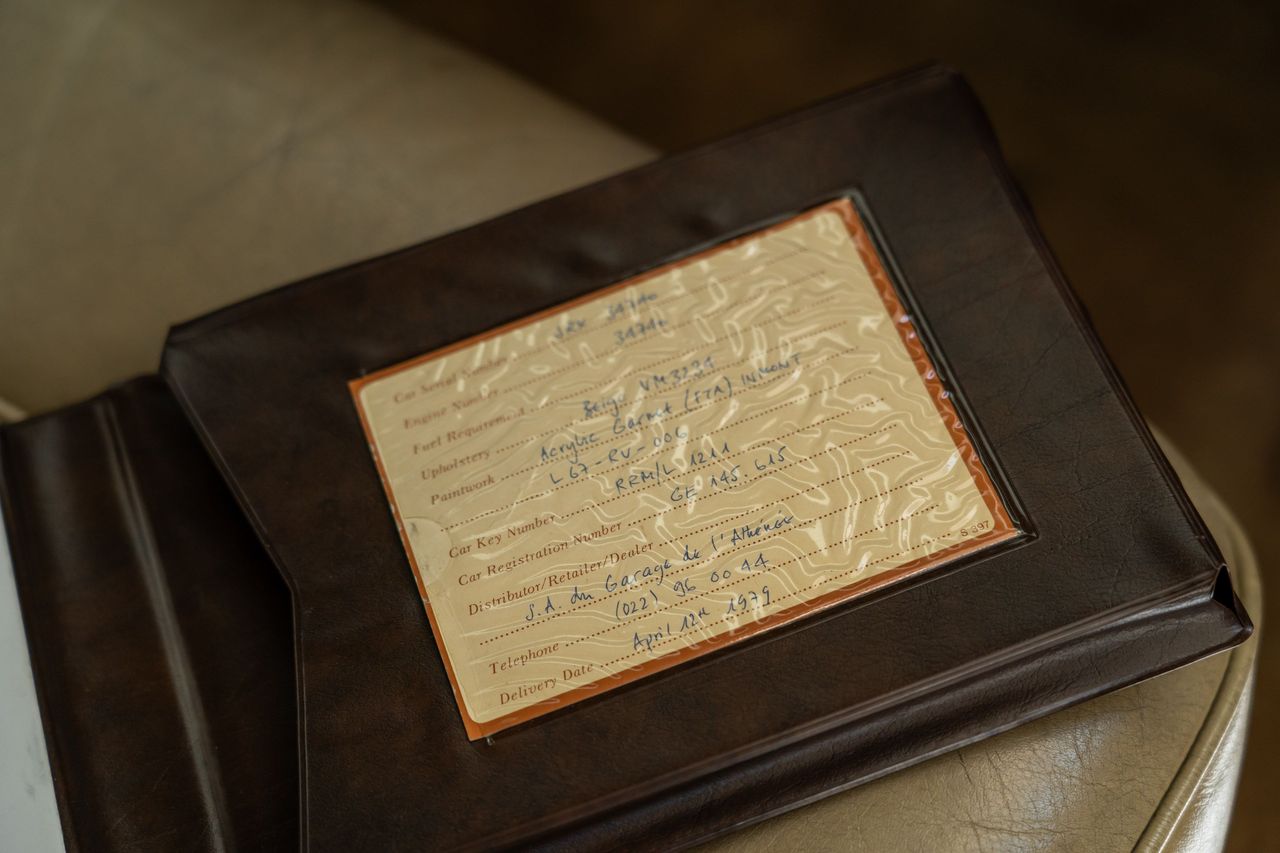 Car Serial Number JRX 34740
Engine Number 34740
Fuel Requirement
Upholstery Beige VM3234
Paintwork Acrylic Garnet (ITA) INMONT
L 67-RV-006
Car Key Number RRM/L 1211
Car Registration Number GE 145.615
Distributor/Retailer/Dealer
S.A. du Garage de l'Athénée
Telephone (022) 96 00 44
Delivery Date April 12th 1979
S 397